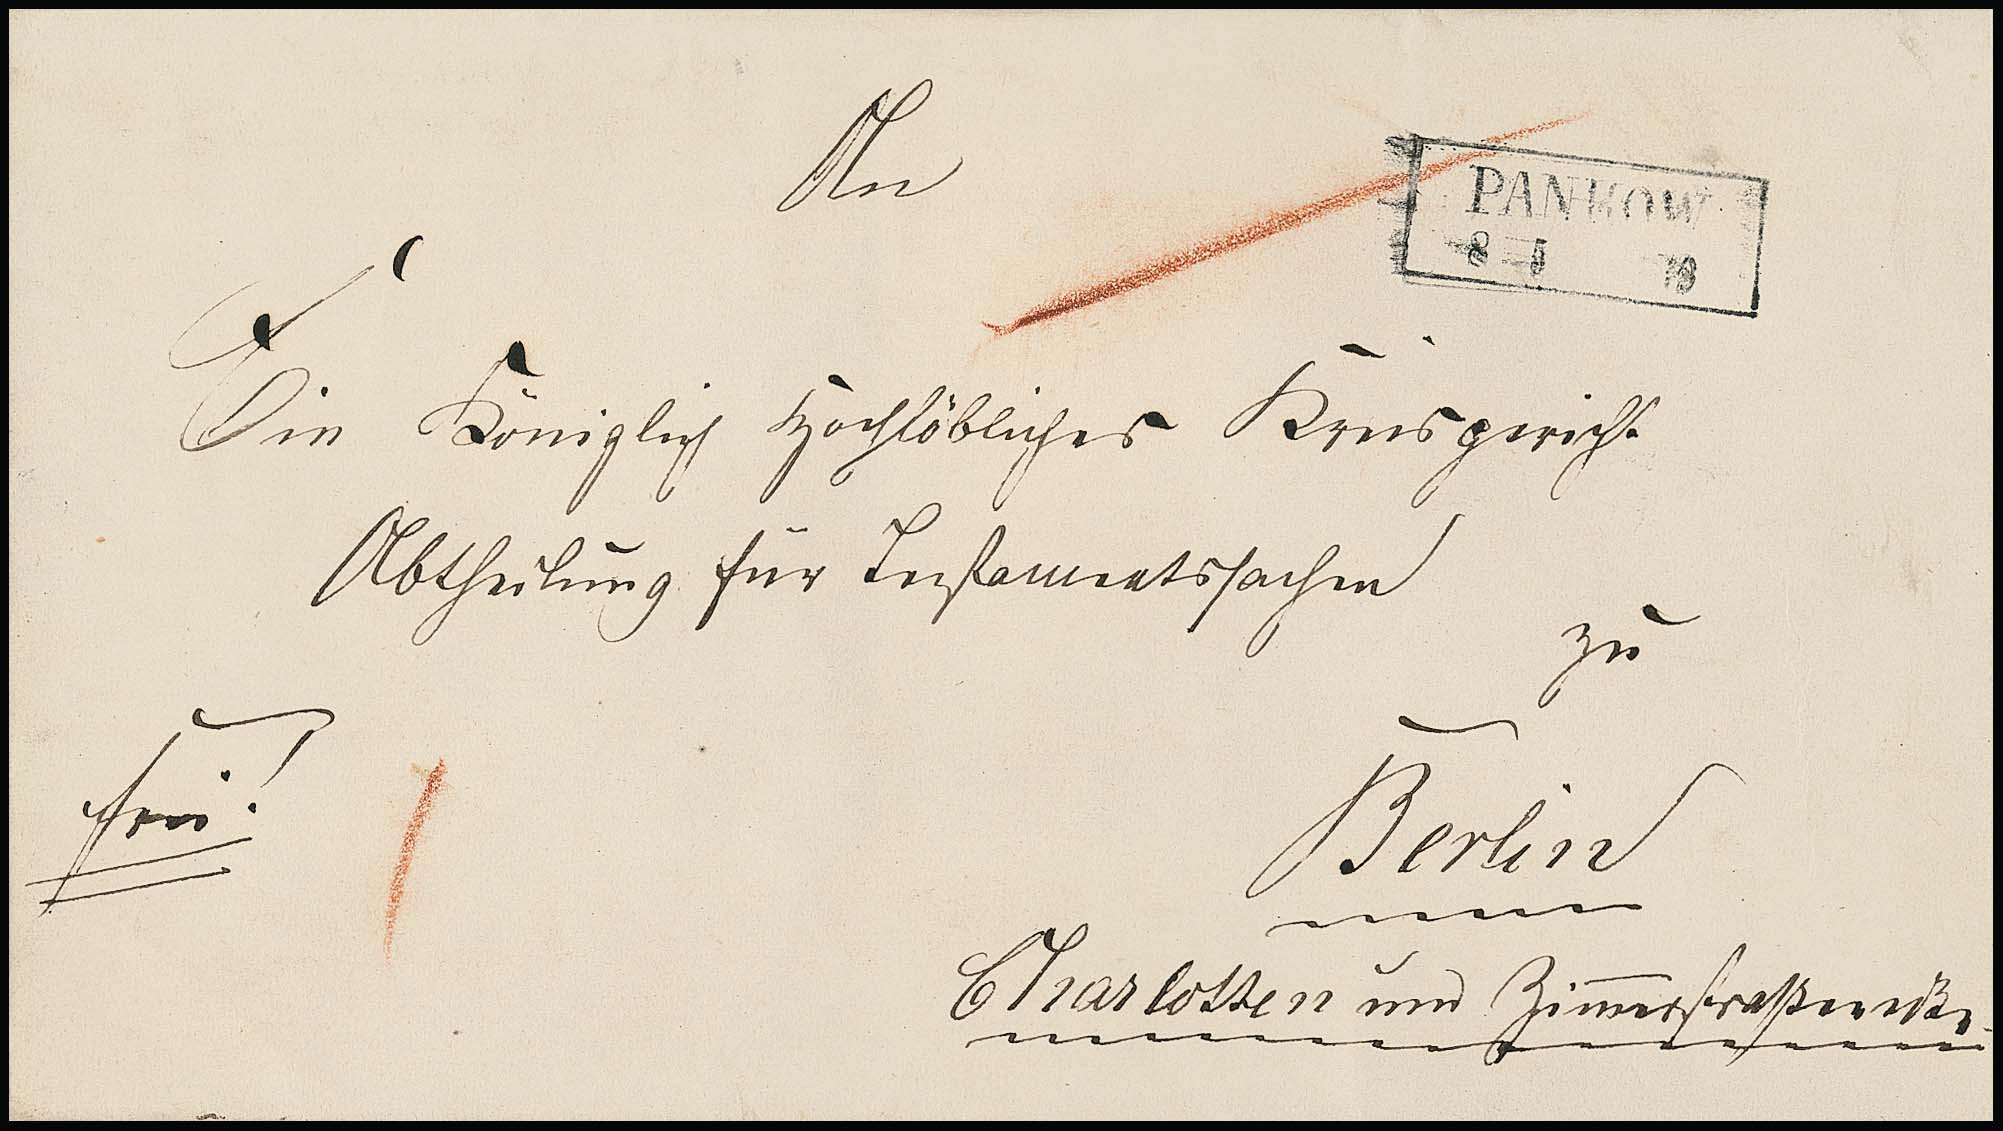 An
PANKOW
8 1
Ein Königlich Hochlöbliches Kreisgericht
Abtheilung für Testamentssachen
zu
frei!
Berlin
Charlotten und Zimmerstraßenecke